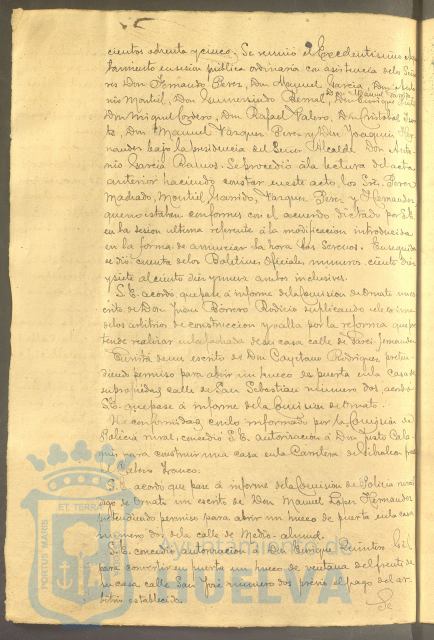 cientos ochenta y cinco, Se reunió el Excelentísimo Ayun-
tamiento en sesión pública ordinaria con asistencia de los Seño-
res Don Fernando Perez, Don Manuel Garcia, Don Anto-
nio Montiel, Don Gumersindo Bernal, Don Enrique
Don Enrique Cordero, Don Rafael Valero, Don Cristobal
Don Manuel Vazquez Perez y Don Joaquin Her-
nandez bajo la presidencia del Señor Alcalde Don Anto-
nio Garcia Ramos. Se procedió á la lectura del acta
anterior haciendo constar en este acto, los Sres. Perez
Madrado, Montiel, Garrido, Vazquez Perez y Hernandez
que no estaban conformes con el acuerdo dictado por S.E.
en la sesión ultima referente á la modificacion introducida
en la forma de anunciar la hora los Serenos. Enseguida
se dió cuenta de los Boletines Oficiales numeros ciento diez
y siete al ciento diez y nueve ambos inclusives.
S.E. acordó que pase á informe de la Comision de Ornato un es-
crito de Don Juan Borrero Rodicio suplicando
de los arbitrios de construccion y valla por la reforma que pre-
tende realizar en la fachada de su casa calle de
de un escrito de Don Cayetano Rodriguez, preten-
diendo permiso para abrir un hueco de puerta en la casa de
su propiedad, calle de San Sebastian numero dos, acordó
S.E. que pase á informe de la Comision de Ornato.
De conformidad con lo informado por la Comision de
Policia rural, concedió S.E. autorizacion á Don Justo
para construir una casa en la Carretera de Gibraleon
S.E. acordó que pase á informe de la Comision de Policia
de Ornato un escrito de Don Manuel Lopez Hernandez
pretendiendo permiso para abrir un hueco de puerta en la casa
número dos de la calle de Medio-almud.
S.E. concedió autorizacion á Don Enrique Quintero
para convertir en puerta un hueco de ventana del frente de
su casa calle San José numero dos previo el pago del ar-
bitrio establecido.
Se
PORTUS MARIS ET TERRAE
Ayuntamiento de
HUELVA